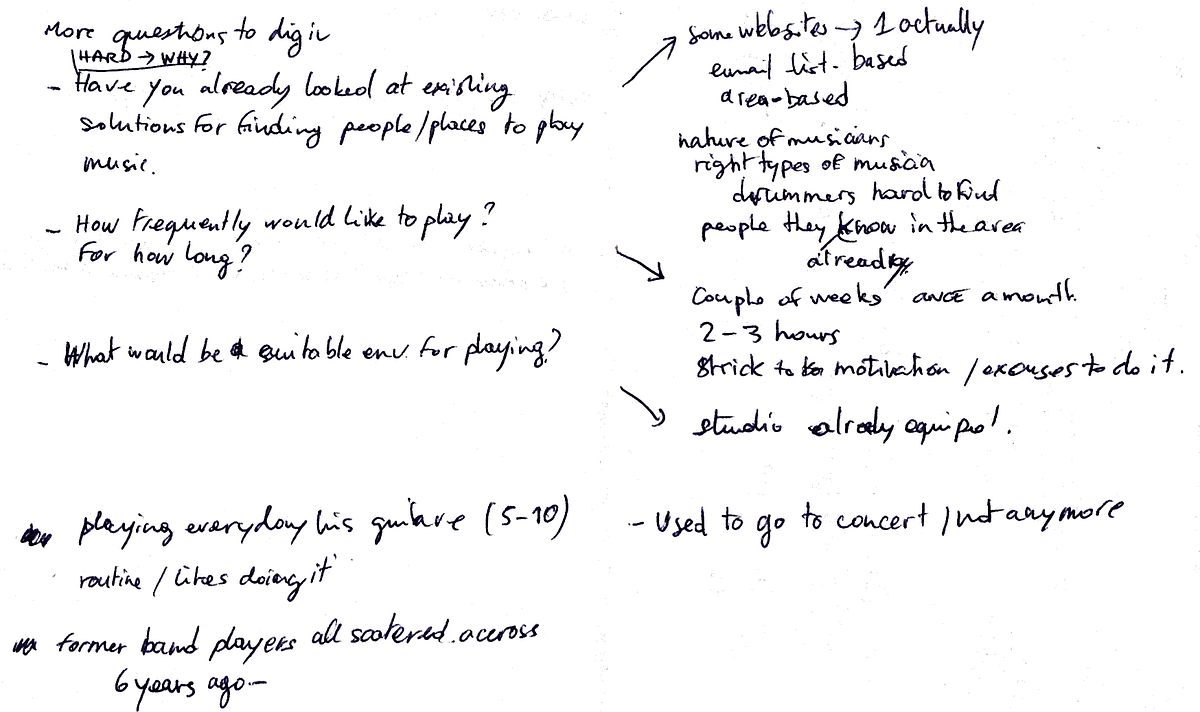 More questions to dig in
HARD → WHY?
- Have you already looked at existing
solutions for finding people/places to play
music.
- How frequently would like to play?
For how long?
- What would be a suitable env. for playing?
playing everyday his guitare (5-10)
routine / likes doing it
former band players all scatered accross
6 years ago -
→ some websites → 1 actually
email list. based
area-based
nature of musicians
right types of musicia
drummers hard to find
people they know in the area
already
→ Couple of weeks / once a month.
2-3 hours
Strick to motivation / excuses to do it.
→ studio already equiped.
- Used to go to concert / not anymore